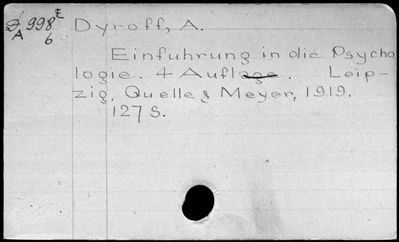 D 998 E Dyroff, A.
A 6
Einfuhrung in die Psycho
logie. 4 Auflage. Leip-
zig, Quelle & Meyer, 1919.
127 S.